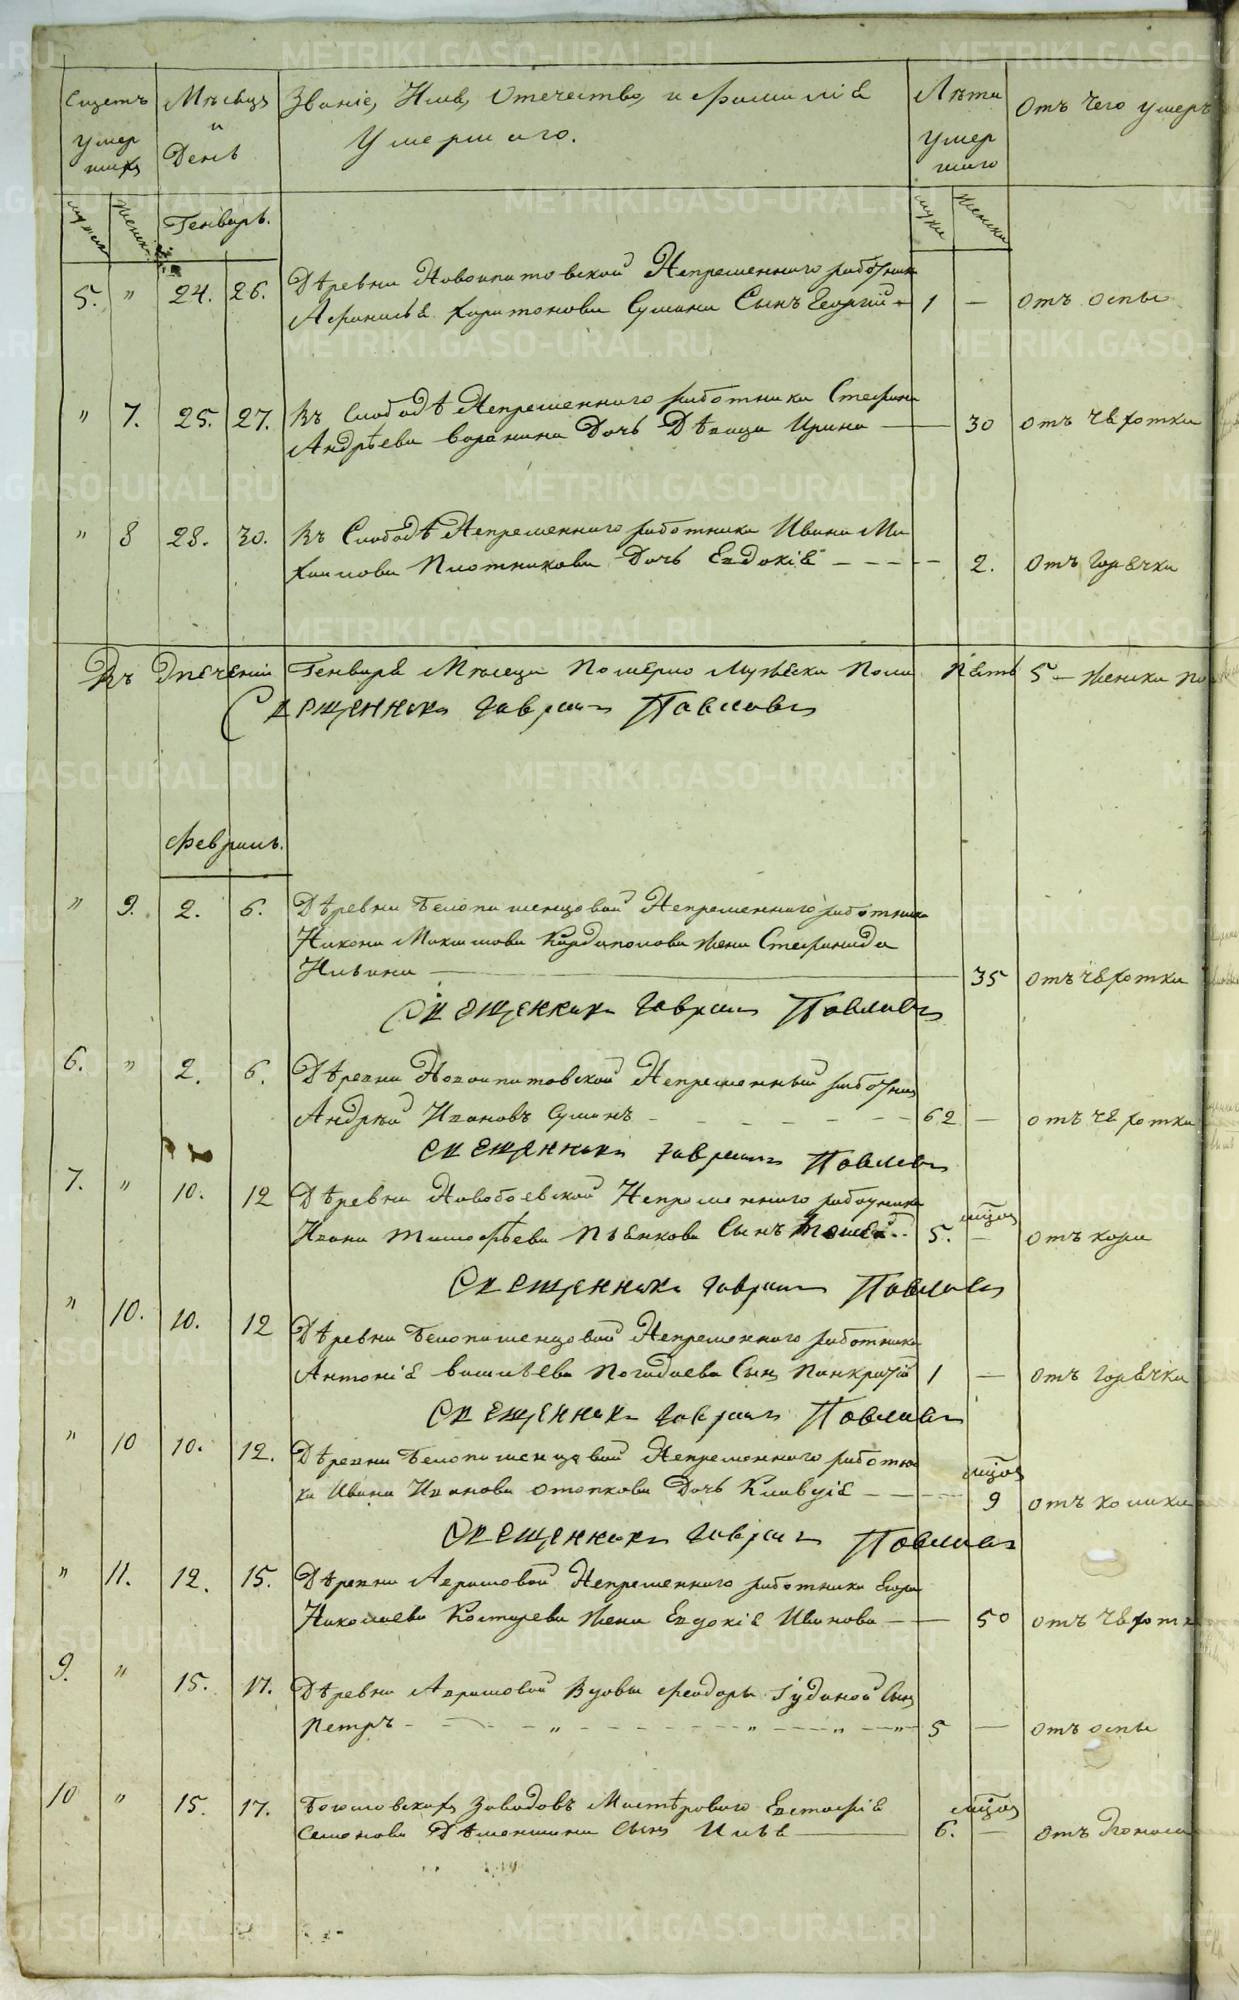 Счетъ умер шихъ
Мѣсяцъ и День
Званіе, Имя, Отечество, и фамилія Умершаго.
Лѣта умер шаго
Отъ чего умеръ
мужск женск
Генварь.
мужс женска
5. " 24. 26. Дѣревни Новоипатовской Непременнаго работника
Афанасья Харитонова Сумина Сынъ Георгий 1 — отъ оспы
" 7. 25. 27. Въ Слободѣ Непременнаго работника Стефана
Андрѣева Дочь Дѣвица Ирина — 30 отъ чахотки
" 8 28. 30. Въ Слободѣ Непременнаго работника Ивана Ми
хаилова Плотникова Дочь Евдокія - - - - 2. Отъ Горячки
Въ Генваря Мѣсяца Померло Мужеска Пола Пять 5 — женска по
Священникъ Гавриилъ Павловъ
Февраль.
" 9. 2. 6. Дѣревни Белопашенцовой Непременнаго работника
Никона Максимова жена Стефанида
Ильина — 35 отъ чахотки
Священникъ Гавриилъ Павловъ
6. " 2. 6. Дѣревни Новоипатовской Непременный работникъ
Андрѣй Ивановъ Суминъ - - - - - 62 — отъ чахотки
Священникъ Гавриилъ Павловъ
7. " 10. 12 Дѣревни Непременнаго работника
мѣсяц
Ивана Тимофѣева Пьянкова Сынъ 5. — отъ кори
Священникъ Гавриилъ Павловъ
" 10. 10. 12 Дѣревни Белопашенцовой Непременнаго работника
Антонія Васильева Погадаева Сынъ Панкратій 1 — отъ Горячки
Священникъ Гавриилъ Павловъ
" 10 10. 12. Дѣревни Белопашенцовой Непременнаго работни
мѣсяц
ка Ивана Иванова Дочь Клавдія - - - 9 отъ колики
Священникъ Гавриилъ Павловъ
" 11. 12. 15. Дѣревни Аверинской Непременнаго работника Егора
Николаева Костарева Жена Евдокія Иванова — 50 отъ чахотк
9. " 15. 17. Дѣревни Аверинской Вдовы Феодоры Гудиной Сынъ
Петръ - - - " - - - - " - - " - " 5 — отъ оспы
10 " 15. 17. Богословскихъ Заводовъ Мастѣроваго Евстафія
мѣсяц
Семенова Дѣменшина сынъ Илья — 6. — отъ